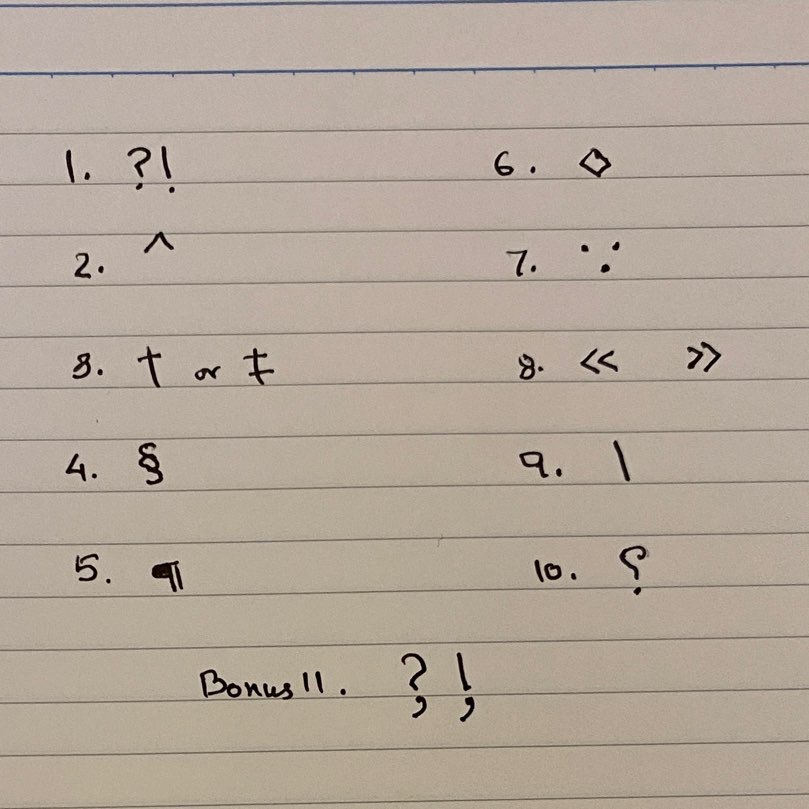 1. ?!
2. ^
3. † or ‡
4. §
5. ¶
6. ◇
7. ∵
8. « »
9. \
10. ⸮
Bonus 11. ?, !,